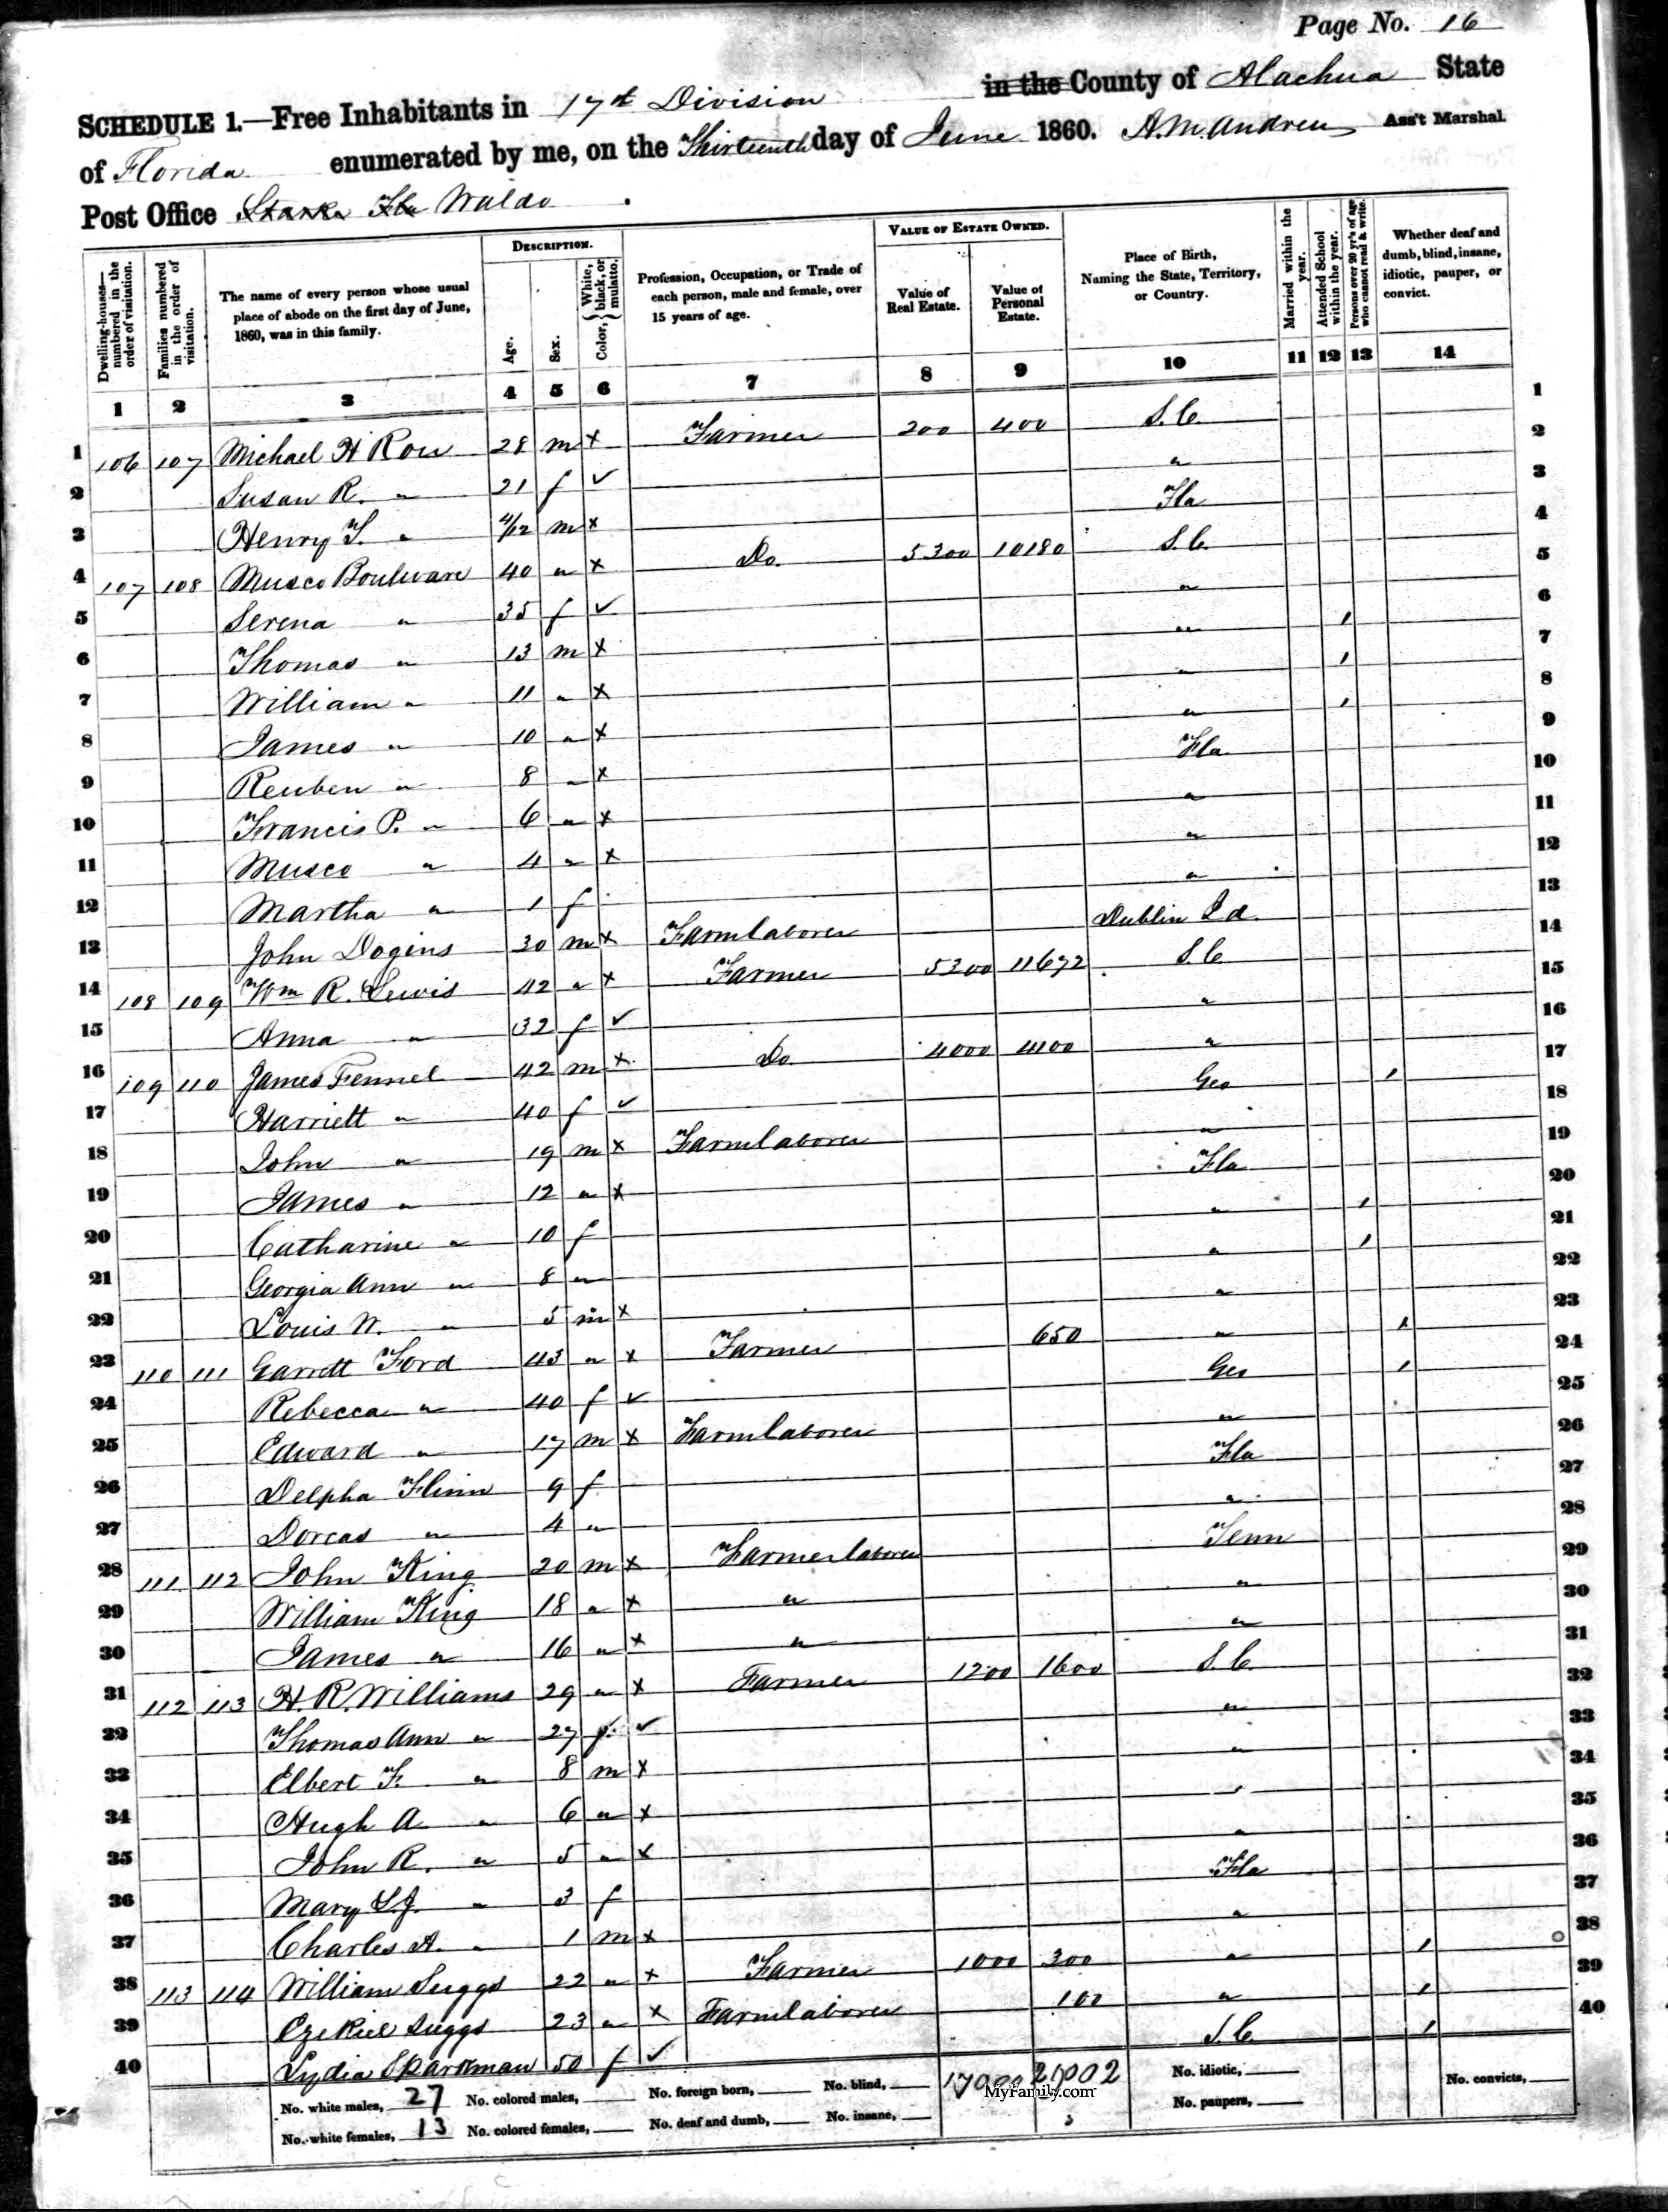 Page No. 16
SCHEDULE 1.—Free Inhabitants in 17th Division in the County of Alachua State
of Florida enumerated by me, on the Thirteenth day of June 1860. A. M. Andreu Ass't Marshal.
Post Office Starke Fla Waldo
Dwelling-houses—numbered in the order of visitation.
Families numbered in the order of visitation.
The name of every person whose usual place of abode on the first day of June, 1860, was in this family.
DESCRIPTION.
Age.
Sex.
Color, { White, black, or mulatto.
Profession, Occupation, or Trade of each person, male and female, over 15 years of age.
VALUE OF ESTATE OWNED.
Value of Real Estate.
Value of Personal Estate.
Place of Birth, Naming the State, Territory, or Country.
Married within the year.
Attended School within the year.
Persons over 20 yr's of age who cannot read & write.
Whether deaf and dumb, blind, insane, idiotic, pauper, or convict.
1 2 3 4 5 6 7 8 9 10 11 12 13 14
1 106 107 Michael H Rou 28 m x Farmer 200 400 S.C. 1
2 Susan R. " 21 f ✓ " 2
3 Henry T. " 4/12 m x Fla 3
4 107 108 Musco Boulware 40 " x Do. 5300 10180 S.C. 4
5 Serena " 35 f ✓ " 5
6 Thomas " 13 m x " 1 6
7 William " 11 " x " 1 7
8 James " 10 " x " 1 8
9 Reuben " 8 " x Fla 9
10 Francis P. " 6 " x " 10
11 Musco " 4 " x " 11
12 Martha " 1 f " 12
13 John Dogins 30 m x Farm laborer Dublin I d 13
14 108 109 Wm R. Lewis 42 " x Farmer 5300 11672 S.C. 14
15 Anna " 32 f ✓ " 15
16 109 110 James Fennel 42 m x Do 4000 4100 " 16
17 Harriett " 40 f ✓ Geo 1 17
18 John " 19 m x Farm laborer " 18
19 James " 12 " x Fla 19
20 Catharine " 10 f " 1 20
21 Georgia Ann " 8 " " 1 21
22 Louis W. " 5 m x " 22
23 110 111 Garrett Ford 43 " x Farmer 650 " 1 23
24 Rebecca " 40 f ✓ Geo 1 24
25 Edward " 17 m x Farm laborer " 25
26 Delpha Flinn 9 f Fla 26
27 Dorcas " 4 " " 27
28 111 112 John King 20 m x Farmer laborer Tenn 28
29 William King 18 " x " " 29
30 James " 16 " x " " 30
31 112 113 H. R. Williams 29 " x Farmer 1200 1600 S.C. 31
32 Thomas Ann " 27 f ✓ " 32
33 Elbert F. " 8 m x " 33
34 Hugh A " 6 " x " 34
35 John R. " 5 " x " 35
36 Mary S.J. " 3 f Fla 36
37 Charles A. " 1 m x " 37
38 113 114 William Suggs 22 " x Farmer 1000 300 " 1 38
39 Ezekiel Suggs 23 " x Farm laborer 100 " 1 39
40 Lydia Sparkman 50 f ✓ S.C. 1 40
No. white males, 27 No. colored males, No. foreign born, No. blind, 17000 29002 No. idiotic, No. convicts,
No. white females, 13 No. colored females, No. deaf and dumb, No. insane, No. paupers,
MyFamily.com